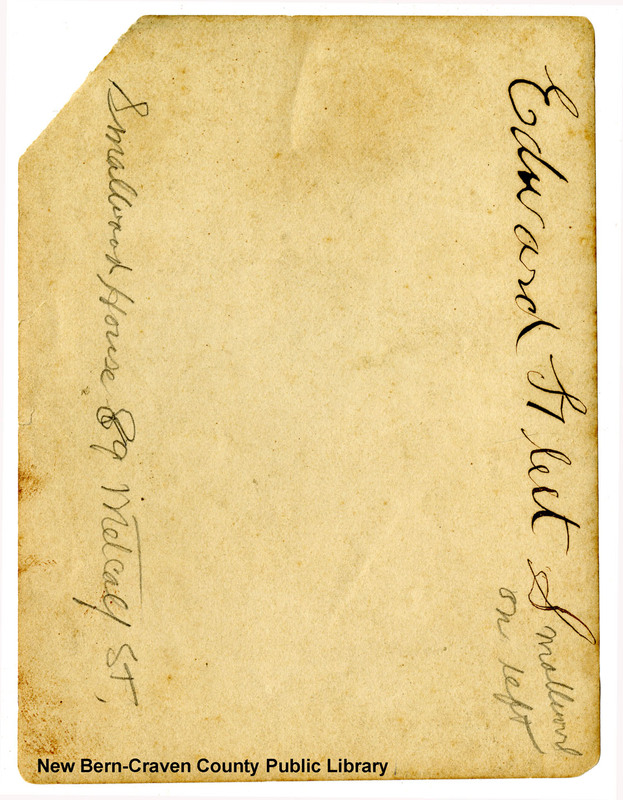 Edward Street Smallwood
on left
Smallwood House 89 Metcalf St,
New Bern-Craven County Public Library